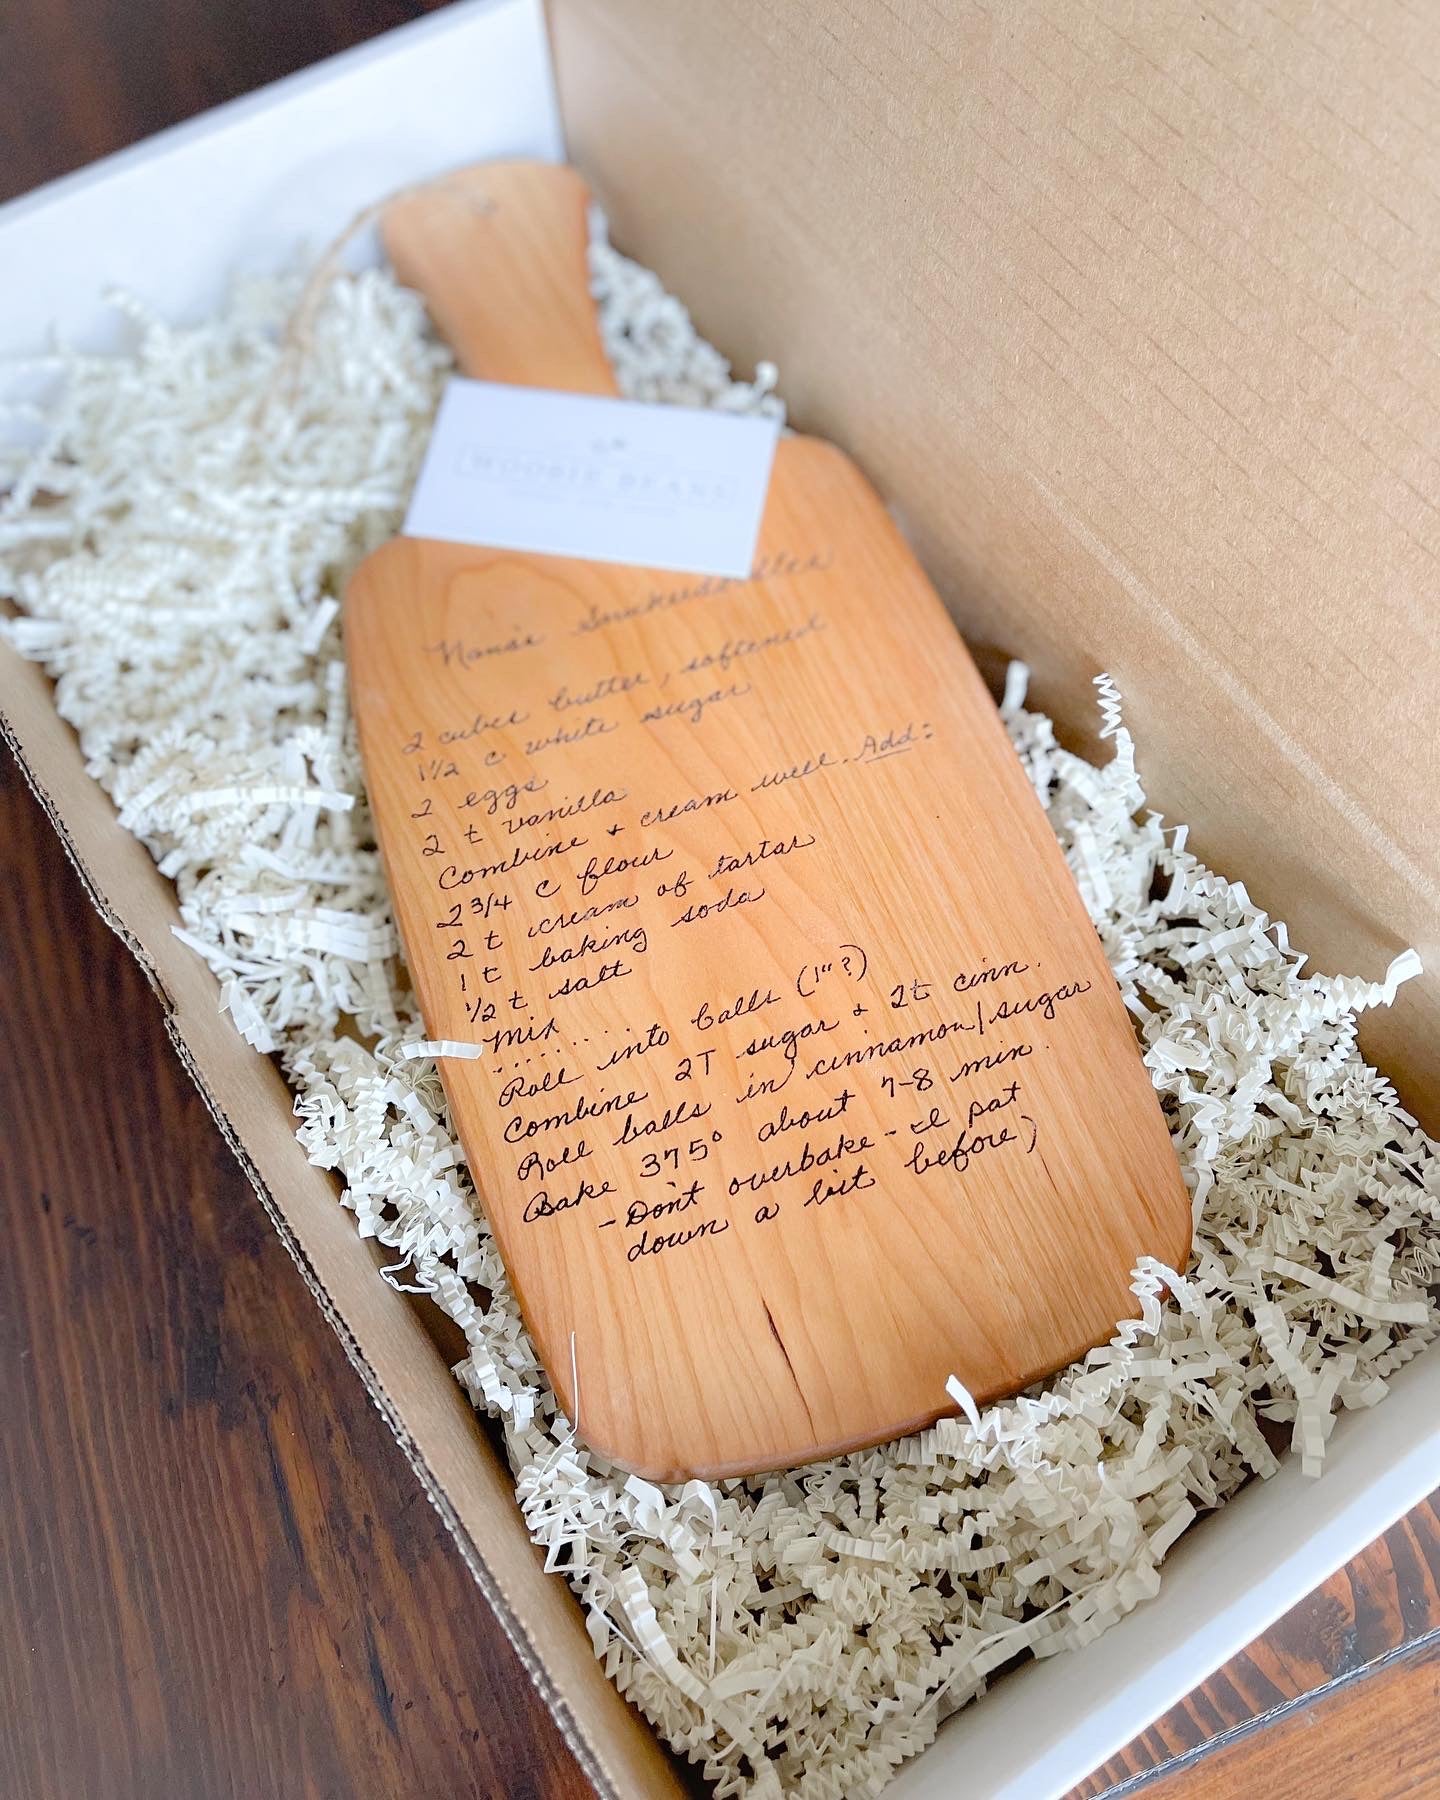 WOODIE BEANS
Nana's Snickerdoodles
2 cubes butter, softened
1 1/2 c white sugar
2 eggs
2 t vanilla
Combine + cream well. Add:
2 3/4 c flour
2 t cream of tartar
1 t baking soda
1/2 t salt
Mix
......
Roll into balls (1"?)
Combine 2T sugar + 2t cinn.
Roll balls in cinnamon/sugar
Bake 375° about 7-8 min.
-Don't overbake - I pat
down a bit before)